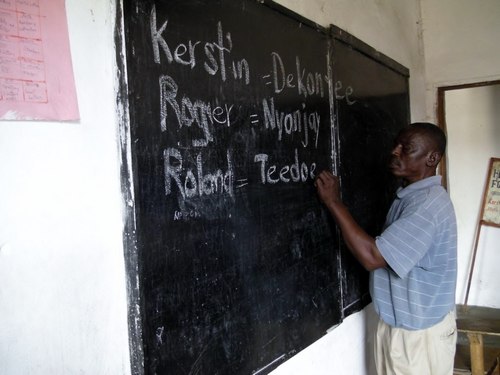 Kerstin = Dekontee
Roger = Nyonjay
Roland = Teedoe